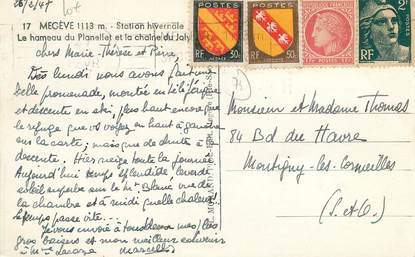 26/2/47
17 MEGÈVE 1113 m. - Station hivernale
Le hameau du Planellet et la chaîne du Joly
chers Marie-Thérèse et Pierre
Dès lundi nous avons fait une
belle promenade, montée en téléférique
et descente en ski, plus haut encore que
le refuge que vs voyez en haut à gauche
sur la carte, mais que de droite à
descente. Hier neige toute la journée
Aujourd'hui temps splendide lever de
soleil superbe sur le mt Blanc vue de
la chambre et à midi quelle chaleur
le temps passe vite...
Je vous envoie à tous mes
gros baisers et mon meilleur souvenir
à Mme Lacaze Marcelle
Monsieur et Madame Thomas
84 Bd du Havre
Montigny-les-Cormeilles
(S. et O.)
RF 30c
RF 50c
2F
RF